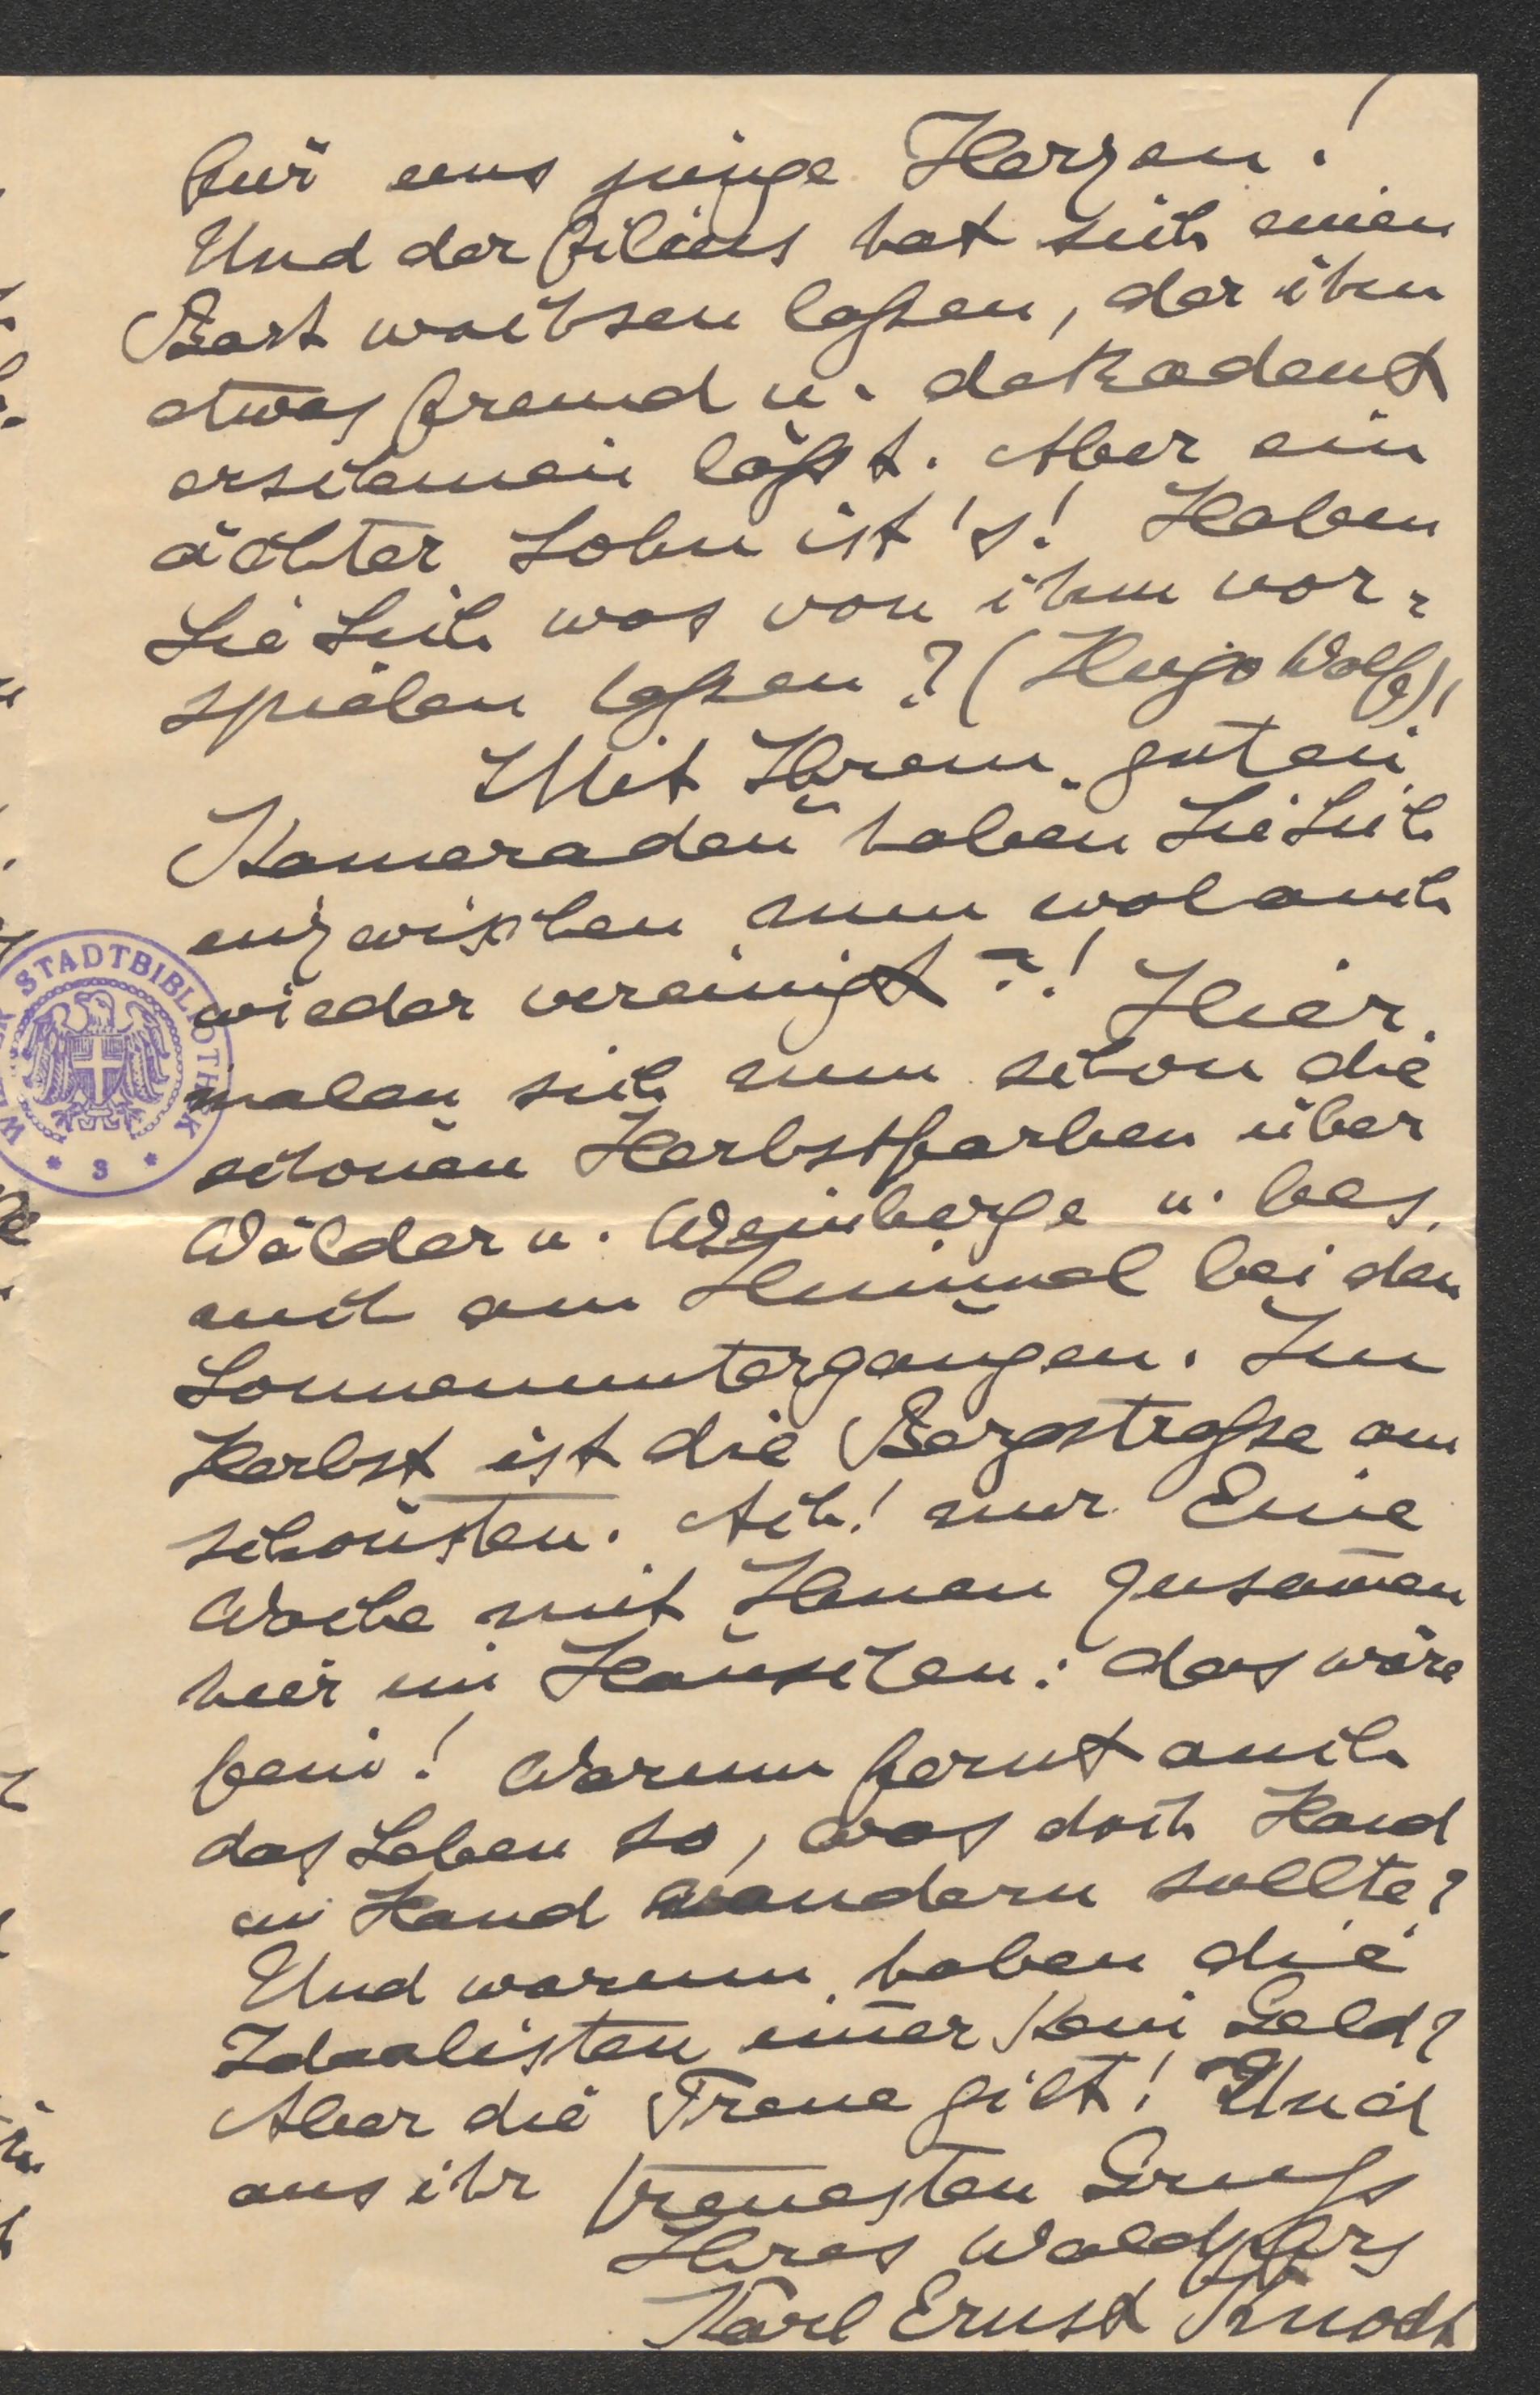 für uns junge Herzen!
Und der filius hat sich einen
Bart wachsen laßen, der ihn
etwas fremd u. dekadent
erscheinen läßt. Aber ein
ächter Sohn ist's! Haben
Sie Sich was von ihm vor-
spielen laßen? (Hugo Wolf)!
Mit Ihrem guten
Kameraden haben Sie Sich
inzwischen nun wol auch
wieder vereinigt?! Hier
malen sich nun schon die
schönen Herbstfarben über
Wälder u. Weinberge u. bes.
auch am Himmel bei den
Sonnenuntergängen. Im
Herbst ist die Bergstraße am
schönsten. Ach! nur Eine
Woche mit Ihnen zusam̄en
hier im Häuschen: das wäre
fein! Warum fernt auch
das Leben so, was doch Hand
in Hand wandern sollte?
Und warum haben die
Idealisten im̄er kein Geld?
Aber die Treue gilt! Und
aus ihr treuesten Gruß
Ihres Waldpfrs
Karl Ernst Knodt
WIENER STADTBIBLIOTHEK
* S *